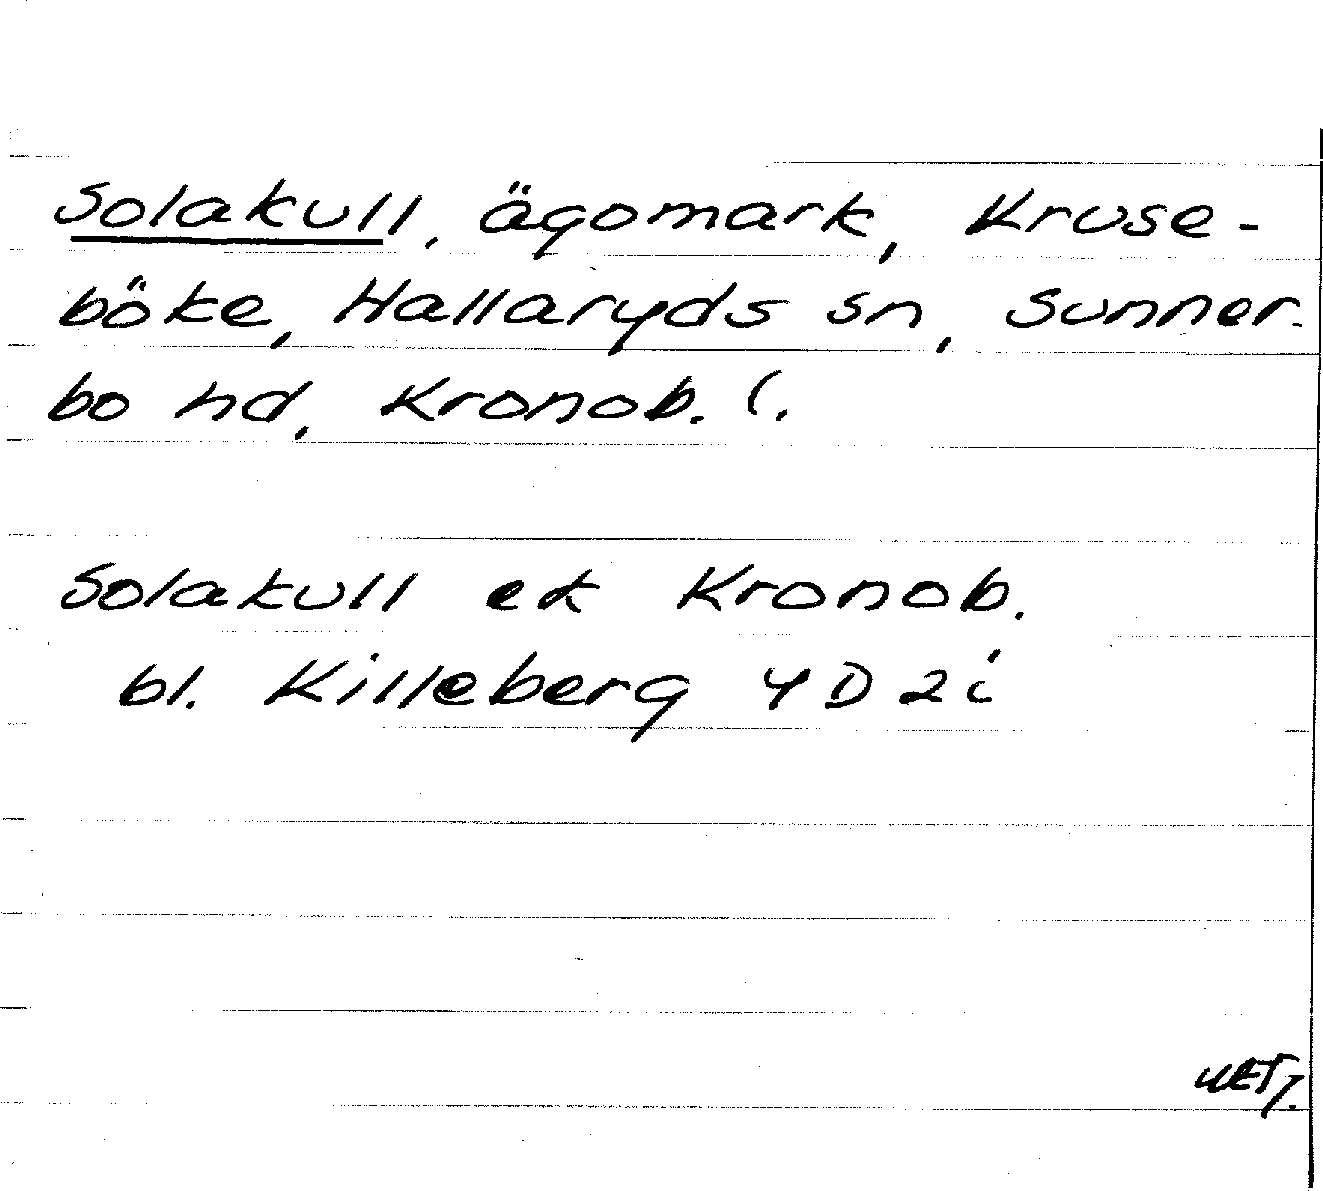 Solakull, ägomark, Kruse-
böke, Hallaryds sn, Sunner-
bo hd, Kronob. l.
Solakull ek Kronob.
bl. Killeberg 4D 2i